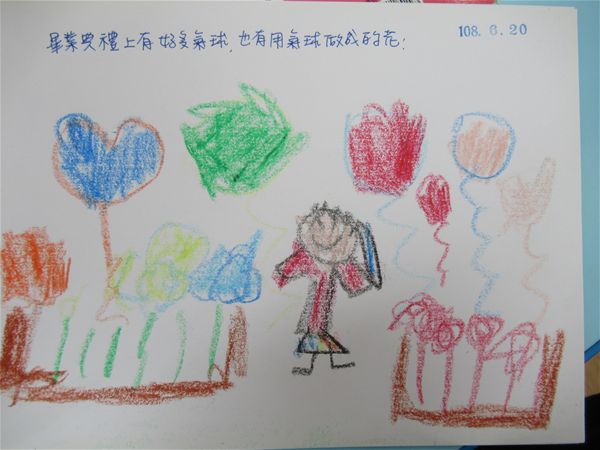 畢業典禮上有好多氣球,也有用氣球做成的花!
108. 6. 20